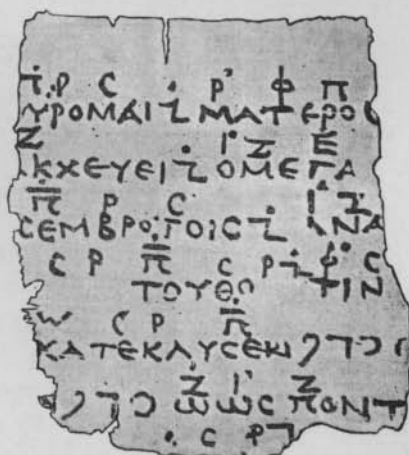 Ρ Ϲ Ρ Φ Π
ΥΡΟΜΑΙ Ζ ΜΑΤΕΡΟ
Ζ Ι Ζ Ε
ΚΧΕΥΕΙ Ζ ΟΜΕΓΑ
Π Ρ Ϲ Ι Ζ
ϹΕΜΒΡΟΤΟΙϹ Ζ ΑΝΑ
Ϲ Ρ Π Ϲ Ρ Ζ Φ Ϲ
ΤΟΥΘΟ ΤΙΝ
Ϲ Ρ Π
ΚΑΤΕΚΛΥϹΕΝ
Ζ Ι Ζ
ΩΩϹ ΠΟΝΤ
Ϲ Ρ